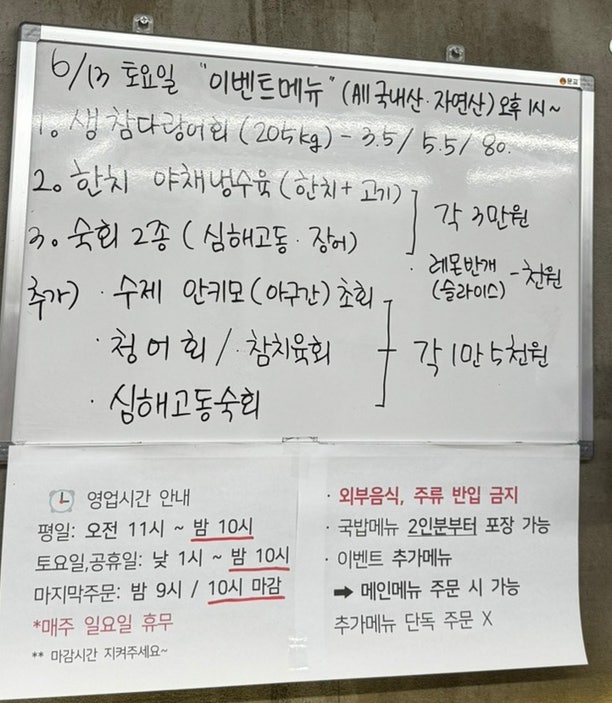 문교
6/13 토요일 "이벤트메뉴" (All 국내산·자연산) 오후 1시~
1. 생참다랑어회 (205kg) - 3.5 / 5.5 / 80.
2. 한치 야채냉수육 (한치+고기)
3. 숙회 2종 (심해고동·장어)
각 3만원
· 레몬반개 (슬라이스) - 천원
추가) · 수제 안키모 (아구간) 초회
· 청어회 / · 참치육회
· 심해고동숙회
각 1만 5천원
영업시간 안내
평일: 오전 11시 ~ 밤 10시
토요일,공휴일: 낮 1시 ~ 밤 10시
마지막주문: 밤 9시 / 10시 마감
*매주 일요일 휴무
** 마감시간 지켜주세요~
· 외부음식, 주류 반입 금지
· 국밥메뉴 2인분부터 포장 가능
· 이벤트 추가메뉴
➡ 메인메뉴 주문 시 가능
추가메뉴 단독 주문 X